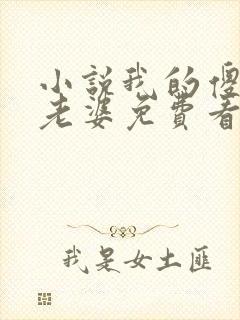 小说我的傻
老婆免费看
我是女土匪